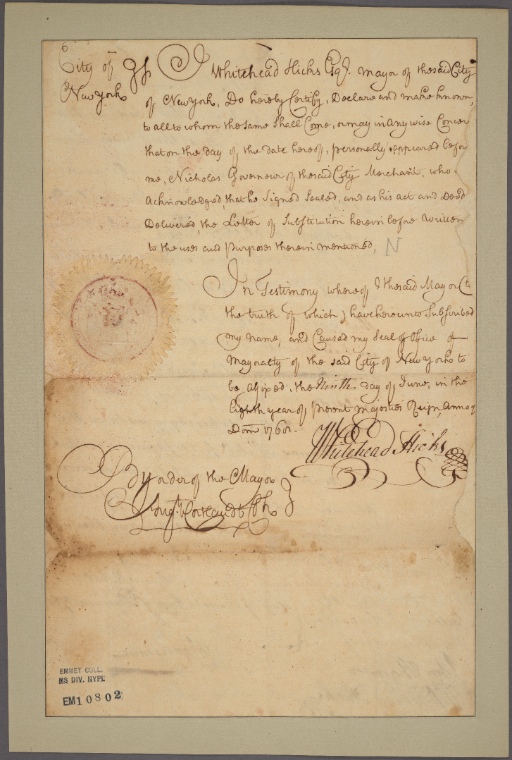 City of
New York
ss
I Whitehead Hicks Esqr. mayor of the said City
of New York, Do hereby Certify, Declare and make known,
to all to whom the same Shall Come, or may in any wise Concern
that on the day of the date hereof, personally appeared before
me, Nicholas Governeur of the said City Merchant, who
Acknowledged, that he Signed Sealed, and as his act and Deed
Delivered the Letter of Substitution herein before written
to the uses and purposes therein mentioned,
N
In Testimony whereof I the said Mayor
the truth of which) have hereunto Subscribed
my name, and Caused my Seal of Office of
Mayoralty of the said City of New York to
be affixed, the Ninth day of June, in the
Eighth year of present majesties Reign, Annoq
Dom 1768.
Whitehead Hicks
By order of the Mayor
EMMET COLL.
MS DIV. NYPL
EM10802